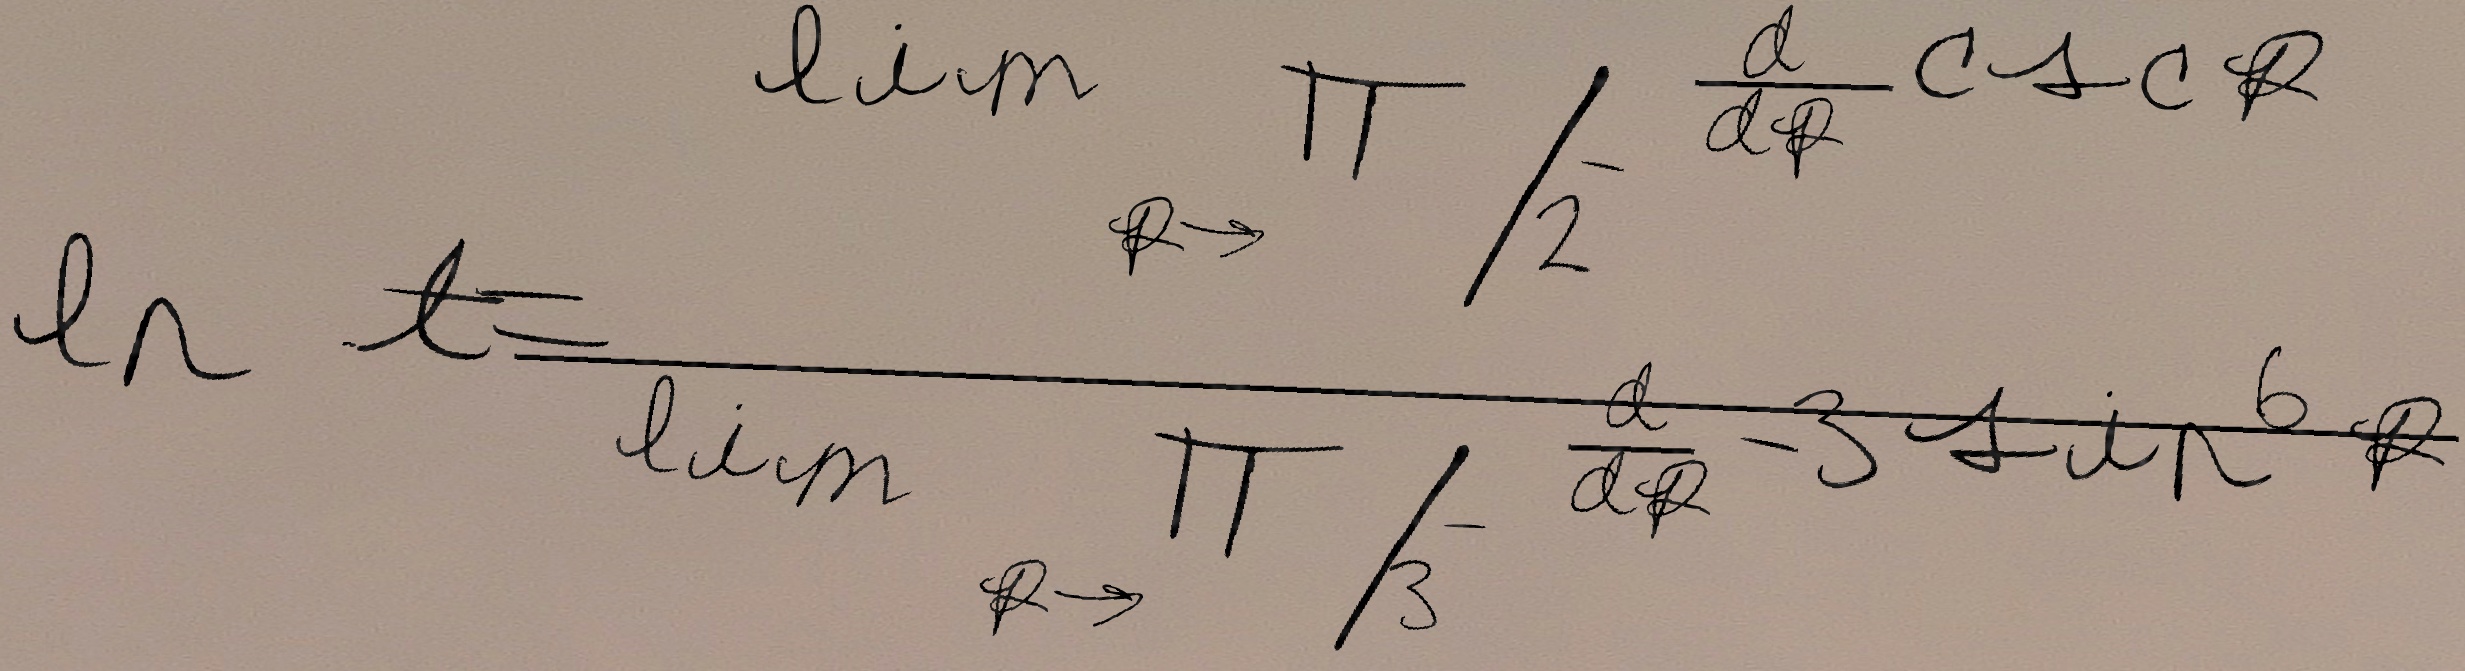 ln t = \frac{\lim_{R \to \pi/2^-} \frac{d}{dR} csc R}{\lim_{R \to \pi/3^-} \frac{d}{dR} -3 sin^6 R}